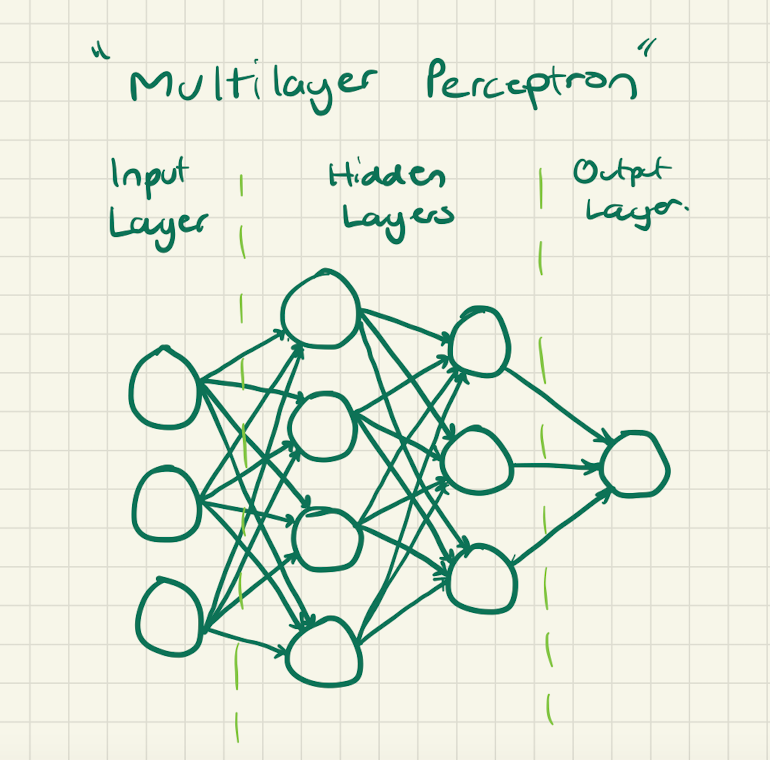 "Multilayer Perceptron"
Input
Layer
Hidden
Layers
Output
Layer.